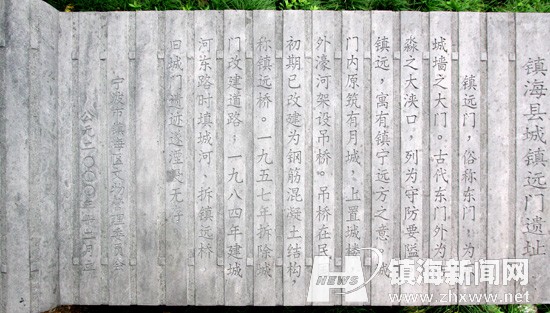 镇海县城镇远门遗址
镇远门，俗称东门，为
城墙之大门。古代东门外为
淼之大浃口，列为守防要隘
镇远，寓有镇宁远方之意。城
门内原筑有月城，上置城楼
外濠河架设吊桥。吊桥在民
初期已改建为钢筋混凝土结构，
称镇远桥。一九五七年拆除城
门改建道路；一九八四年建城
河东路时填城河，拆镇远桥
旧城门遗迹
无存
宁波市镇海区文物管理委员会
公元二〇〇〇年十二月立
镇海新闻网
www.zhxww.net